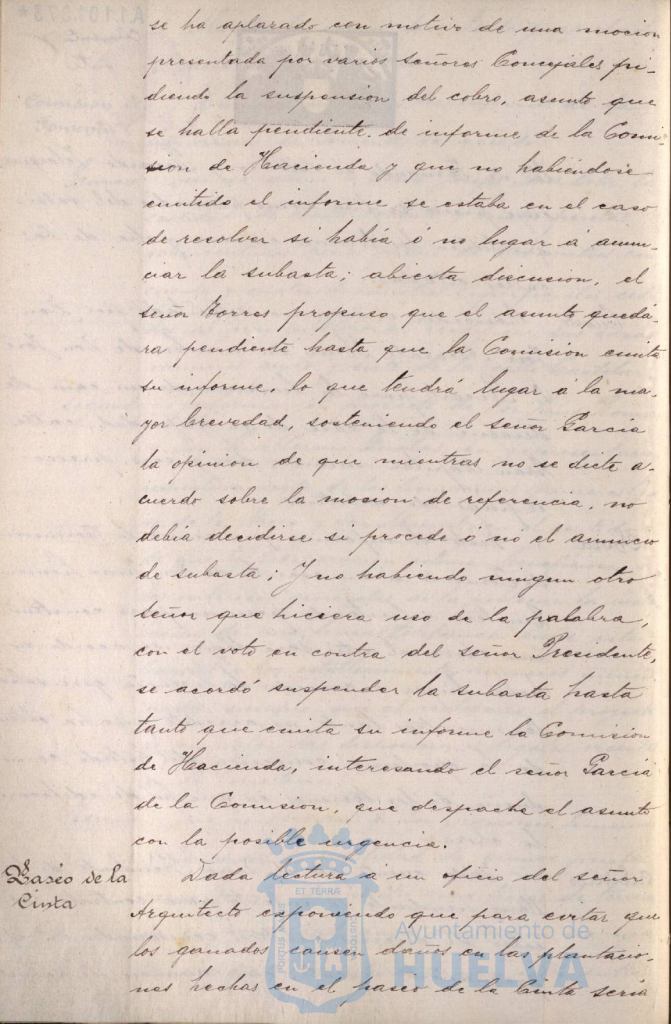 se ha aplazado con motivo de una mocion
presentada por varios señores Concejales pi-
diendo la suspension del cobro, asunto que
se halla pendiente de informe de la Comi-
sion de Hacienda y que no habiéndose
emitido el informe se estaba en el caso
de resolver si había ó no lugar á anun-
ciar la subasta; abierta discusion, el
señor Torres propuso que el asunto quedá-
ra pendiente hasta que la Comision emita
su informe, lo que tendrá lugar á la ma-
yor brevedad, sosteniendo el señor Garcia
la opinion de que mientras no se dicte a-
cuerdo sobre la mocion de referencia, no
debia decidirse si procede ó no el anuncio
de subasta; Y no habiendo ningun otro
señor que hiciera uso de la palabra,
con el voto en contra del señor Presidente,
se acordó suspender la subasta hasta
tanto que emita su informe la Comision
de Hacienda, interesando el señor Garcia
de la Comision, que despache el asunto
con la posible urgencia.
Paseo de la
Cinta
Dada lectura á un oficio del señor
Arquitecto exponiendo que para evitar que
los ganados causen daños en las plantacio-
nes hechas en el paseo de la Cinta seria
ET TERRÆ
PORTUS MARIS
CUSTODIA
Ayuntamiento de
HUELVA